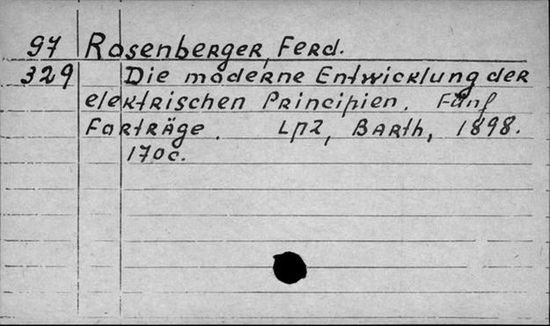 97 Rosenberger, Ferd.
329 Die moderne Entwicklung der
elektrischen Principien. Fünf
Forträge. Lpz, Barth, 1898.
170c.